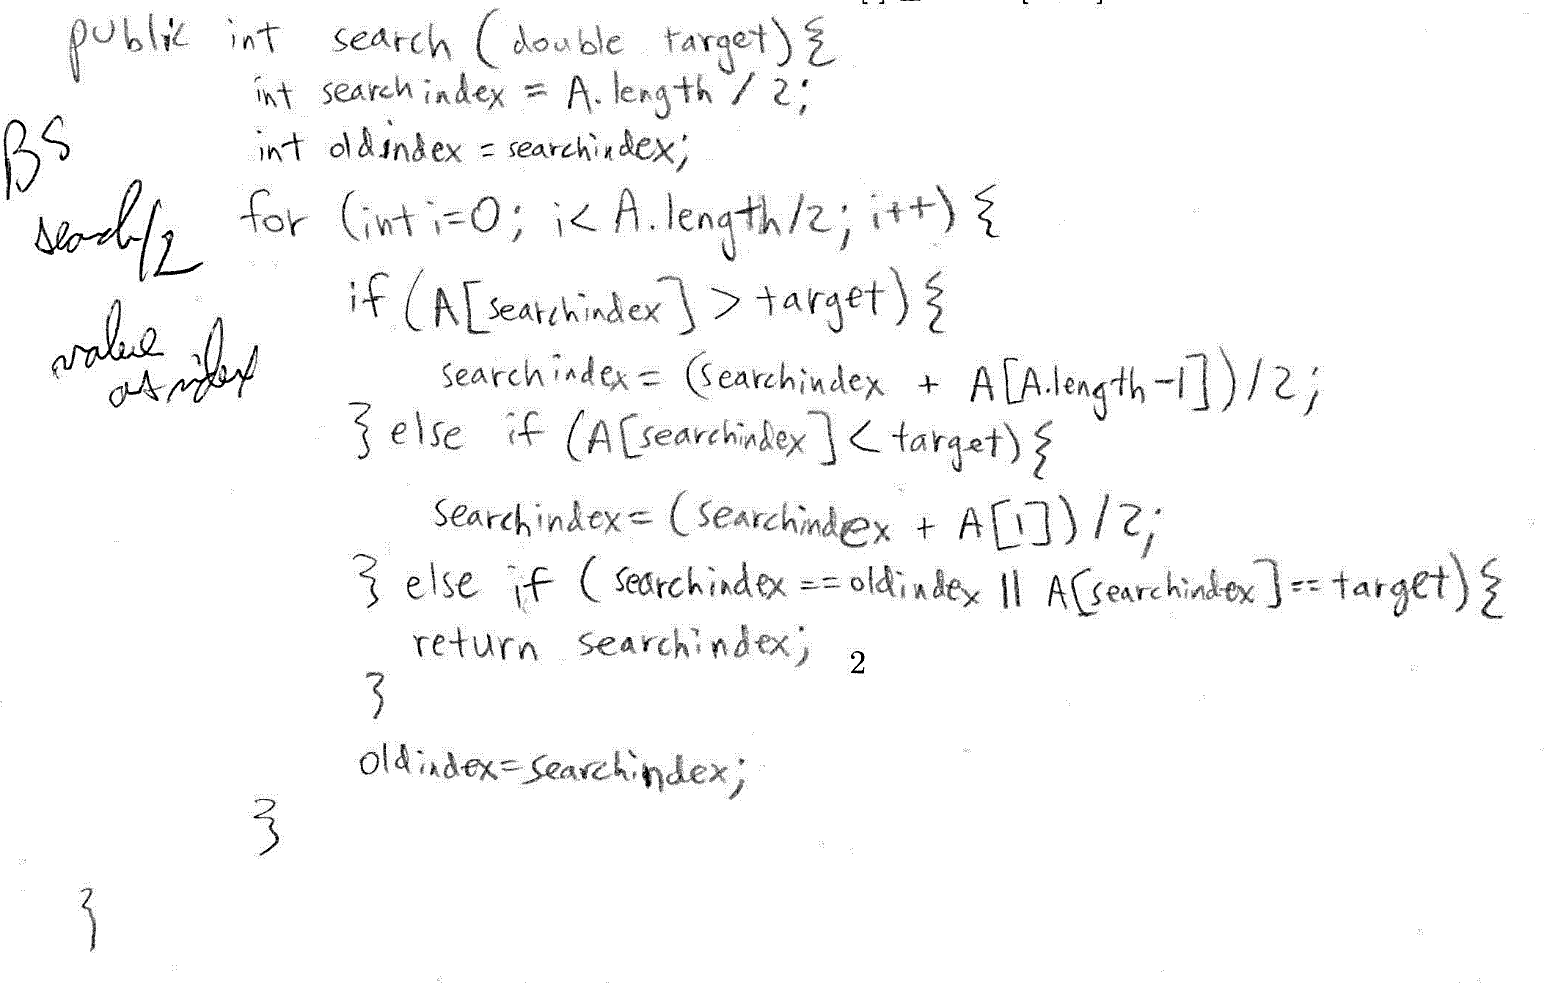 public int search (double target) {
int searchindex = A.length / 2;
int oldindex = searchindex;
BS
search/2
for (int i=0; i< A.length/2; i++) {
if (A[searchindex] > target) {
value
as index
searchindex = (searchindex + A[A.length-1])/2;
} else if (A[searchindex] < target) {
searchindex = (searchindex + A[1])/2;
} else if (searchindex == oldindex || A[searchindex] == target) {
return searchindex;
2
}
oldindex = searchindex;
}
}